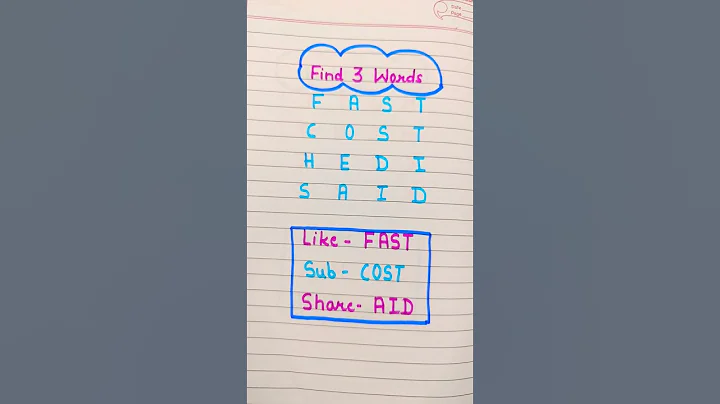 Date
Page
Find 3 Words
F A S T
C O S T
H E D I
S A I D
Like - FAST
Sub - COST
Share - AID